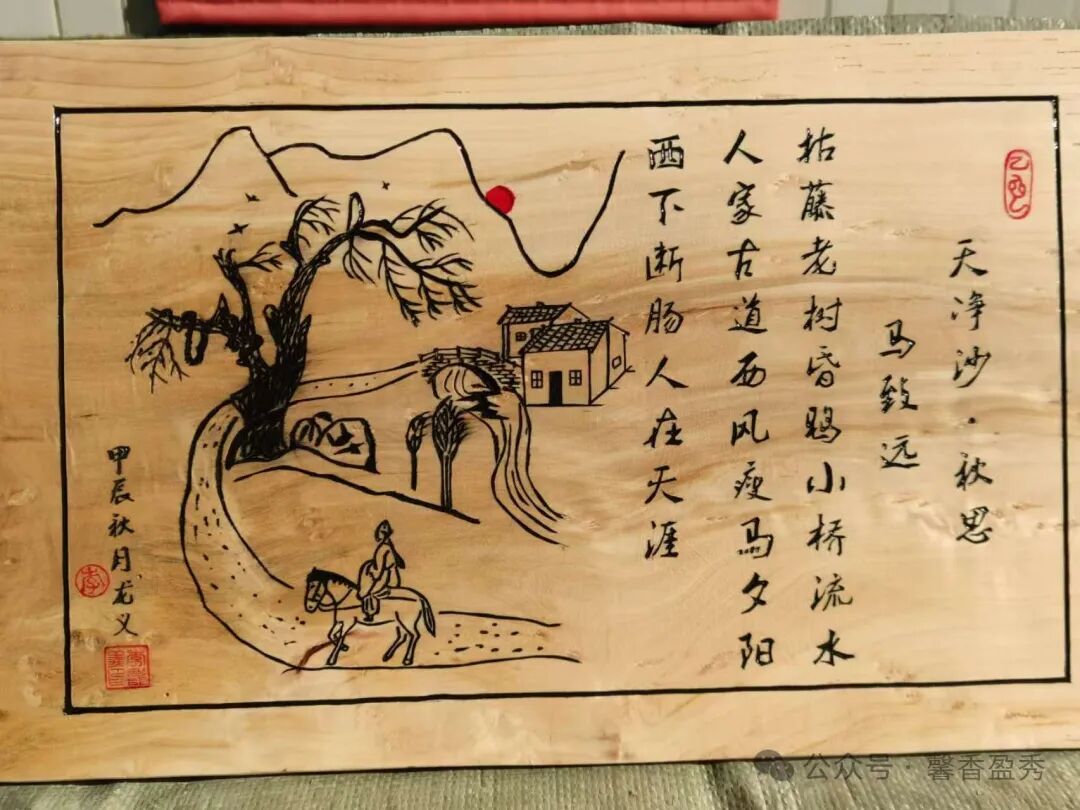 天净沙·秋思
马致远
枯藤老树昏鸦小桥流水
人家古道西风瘦马夕阳
西下断肠人在天涯
甲辰秋月龙义
李
公众号 · 馨香盈秀